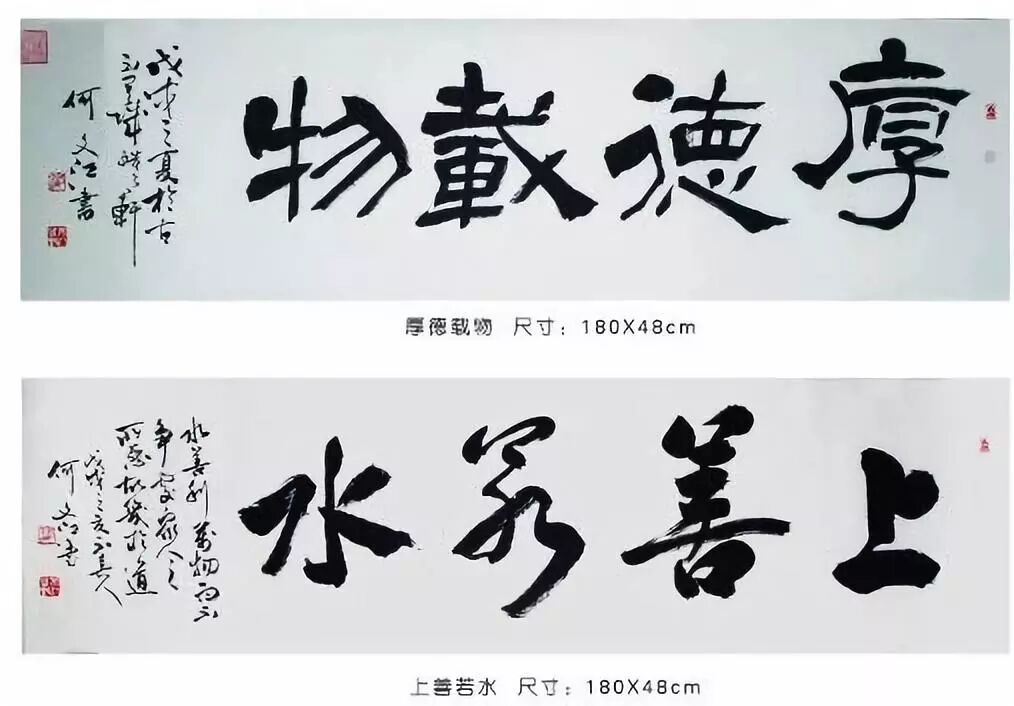 厚德載物
戊戌之夏於古
何文江書
厚德载物 尺寸：180X48cm
上善若水
水善利萬物而不
争處眾人之
所惡故幾於道
何文江書
上善若水 尺寸：180X48cm